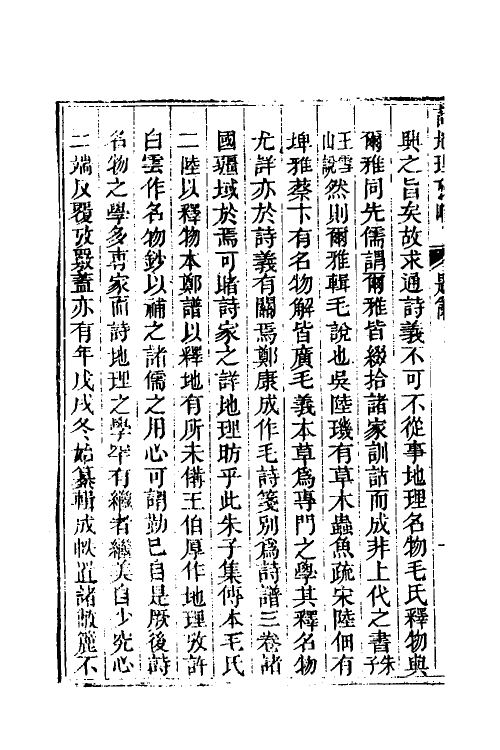 興之旨矣故求通詩義不可不從事地理名物毛氏釋物與
爾雅同先儒謂爾雅皆綴拾諸家訓詁而成非上代之書朱子
王雪山說然則爾雅輯毛說也吳陸璣有草木蟲魚疏宋陸佃有
埤雅蔡卞有名物解皆廣毛義本草爲専門之學其釋名物
尤詳亦於詩義有關焉鄭康成作毛詩箋別爲詩譜三卷諸
國疆域於焉可堵詩家之詳地理昉乎此朱子集傳本毛氏
二陸以釋物本鄭譜以釋地有所未備王伯厚作地理攷許
白雲作名物鈔以補之諸儒之用心可謂勤已自是厥後詩
名物之學多専家而詩地理之學罕有繼者繼美自少究心
二端反覆攷覈蓋亦有年戊戌冬始纂輯成帙置諸敝簏不